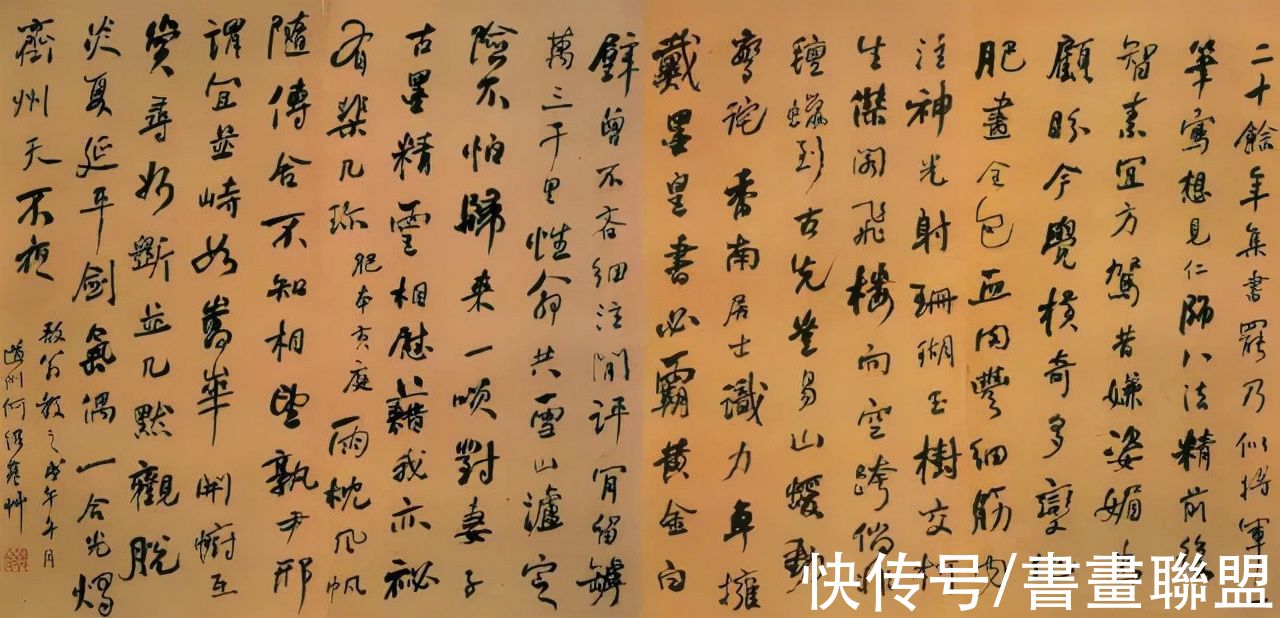 二十餘年集書罷乃似將軍
筆寫想見仁師八法精前後
智素宜方駕昔嫌姿媚為
顧盼今覺橫奇多變
肥畫全包血肉豐細筋內
注神光射珊瑚玉樹交枝
生傑閣飛樓向空跨倘非
氈蠟到古先豈易山蝯動
驚詫香南居士識力卓擁
戴墨皇書必霸黃金白
璧曾不吝細注閒評肯留罅
萬三千里性命共雪山瀘定
險不怕歸來一對妻子
古墨精靈相慰藉我亦祕
有棐几珎肥本黃庭雨枕風帆
隨傳舍不知相望孰尹邢
謂宜並峙如嵩華開廚互
賞尋如斷並几默觀脫
炎夏延平劍氣偶一合光燭
齊州天不夜
翁教之戊午午月
道州何紹基艸
快传号/書畫聯盟